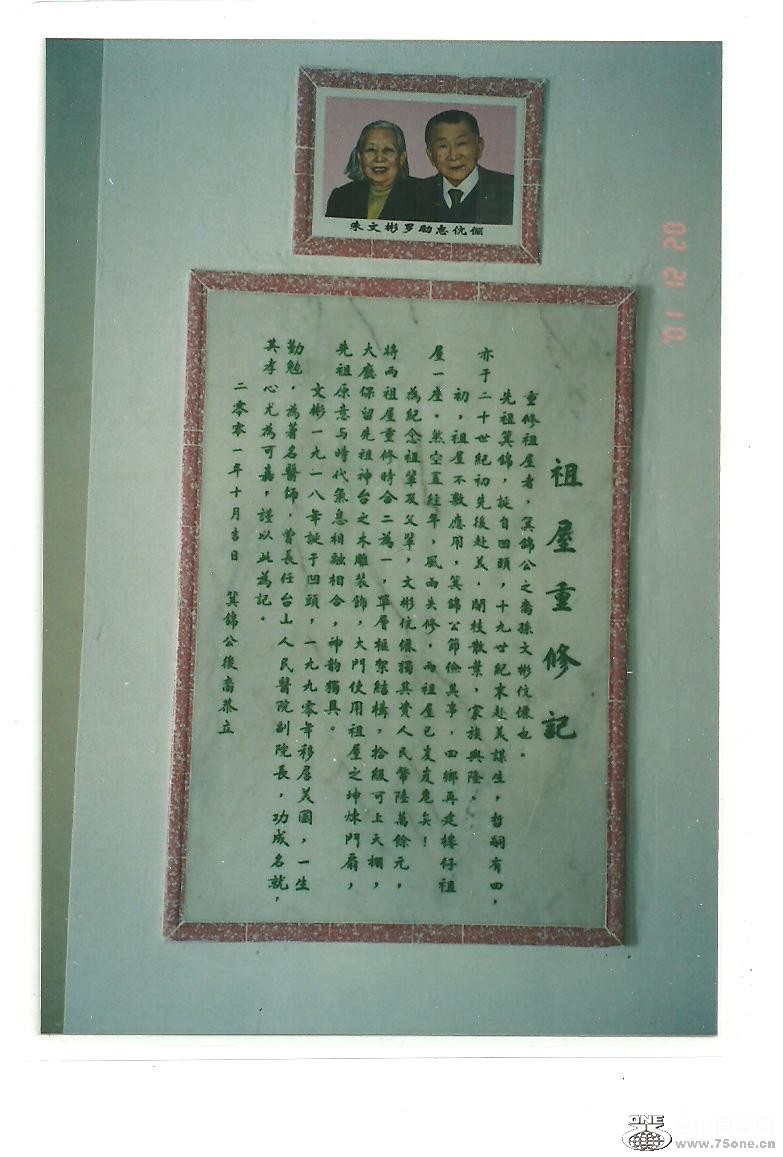 朱文彬罗勋惠伉俪
祖屋重修记
重修祖屋者，箕錦公之裔孫文彬伉儷也。
先祖箕錦，誕自凹頭，十九世紀末赴美謀生，哲嗣有四，
亦于二十世紀初先後赴美，開枝散葉，家族興隆。
初，祖屋不敷應用，箕錦公節儉其事，回鄉再建樓仔祖
屋一座。然空置經年，風雨失修，两祖屋已岌岌危矣！
為紀念祖輩及父輩，文彬伉儷獨其資人民幣陸萬餘元，
將两祖屋重修時合二為一，單層框架結構，拾級可上天棚，
大廳保留先祖神台之木雕裝飾，大門使用祖屋之坤㙡門扇，
先祖原意与時代氣息相融相合，神韵獨具。
文彬一九一八年誕于凹頭，一九九零年移居美國，一生
勤勉，為著名醫師，曾長任台山人民醫院副院長，功成名就，
其孝心尤為可嘉，謹以此為記。
二零零一年十月吉日 箕錦公後裔恭立
01 12 20
ONE
www.75one.cn